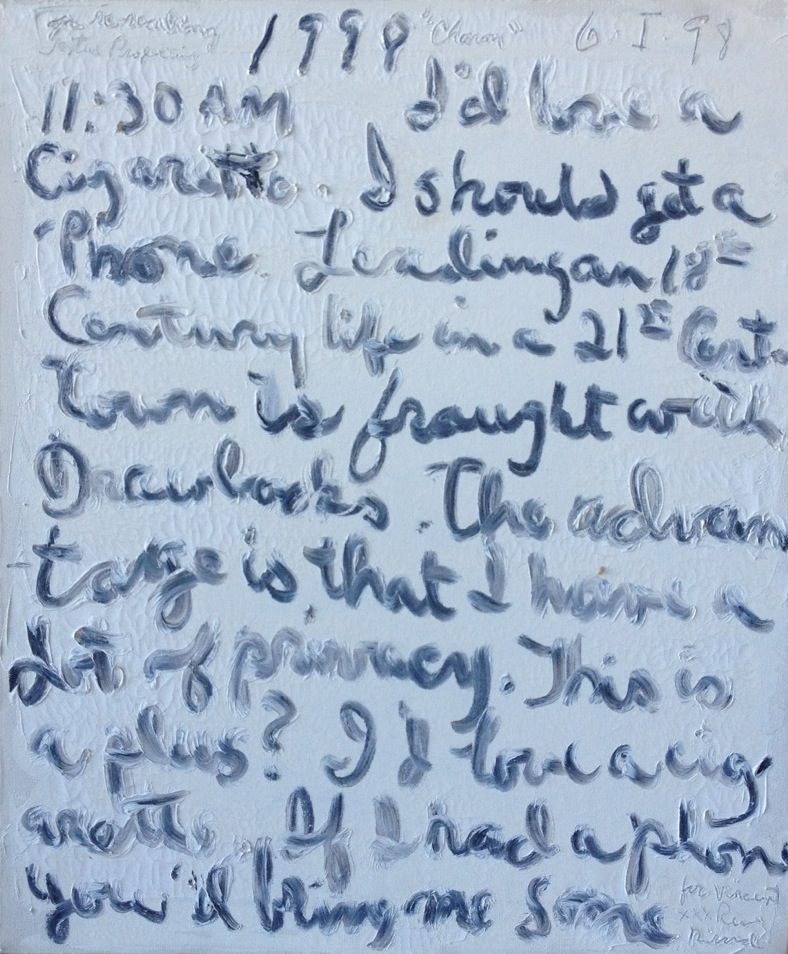 1998 "Charon" 6. I. 98
11:30 AM I'd love a
Cigarette. I should get a
Phone. Leading an 18th
Century life in a 21st Cent.
town is fraught with
Drawbacks. The advan
tage is that I have a
Lot of privacy. This is
a plus? I'd love a cig,
arette. If I had a phone
you'd bring me some
for Vincent
xxx Rene
Ricard